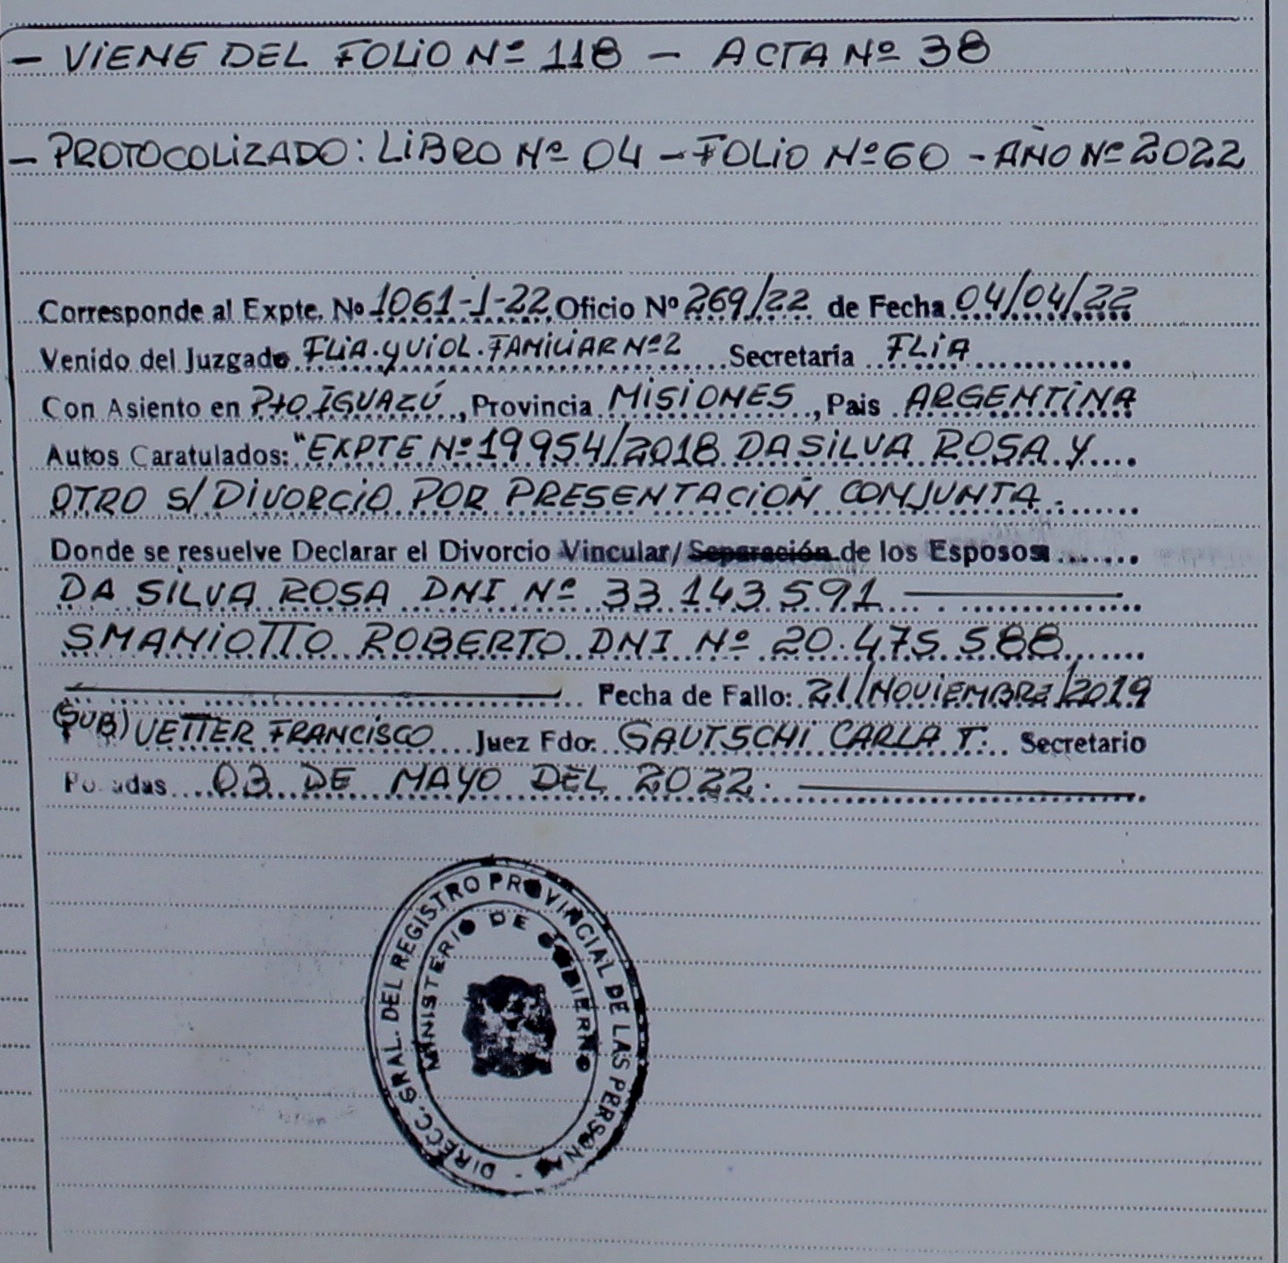 - VIENE DEL FOLIO Nº 118 - ACTA Nº 38
- PROTOCOLIZADO: LIBRO Nº 04 - FOLIO Nº 60 - AÑO Nº 2022
Corresponde al Expte. Nº 1061-J-22 Oficio Nº 269/22 de Fecha 04/04/22
Venido del Juzgado FLIA. y VIOL. FAMILIAR Nº2 Secretaria FLIA
Con Asiento en Pto IGUAZÚ, Provincia MISIONES, Pais ARGENTINA
Autos Caratulados: "EXPTE Nº 19954/2018 DA SILVA ROSA Y
OTRO S/ DIVORCIO POR PRESENTACIÓN CONJUNTA.
Donde se resuelve Declarar el Divorcio Vincular/Separación de los Esposos
DA SILVA ROSA DNI Nº 33.143.591
SMANIOTTO ROBERTO DNI Nº 20.475.588
Fecha de Fallo: 21/NOVIEMBRE/2019
(SUB) VETTER FRANCISCO Juez Fdo: GAUTSCHI CARLA T. Secretario
Posadas 03 DE MAYO DEL 2022.
DIRECC. GRAL. DEL REGISTRO PROVINCIAL DE LAS PERSONAS -
MINISTERIO DE GOBIERNO